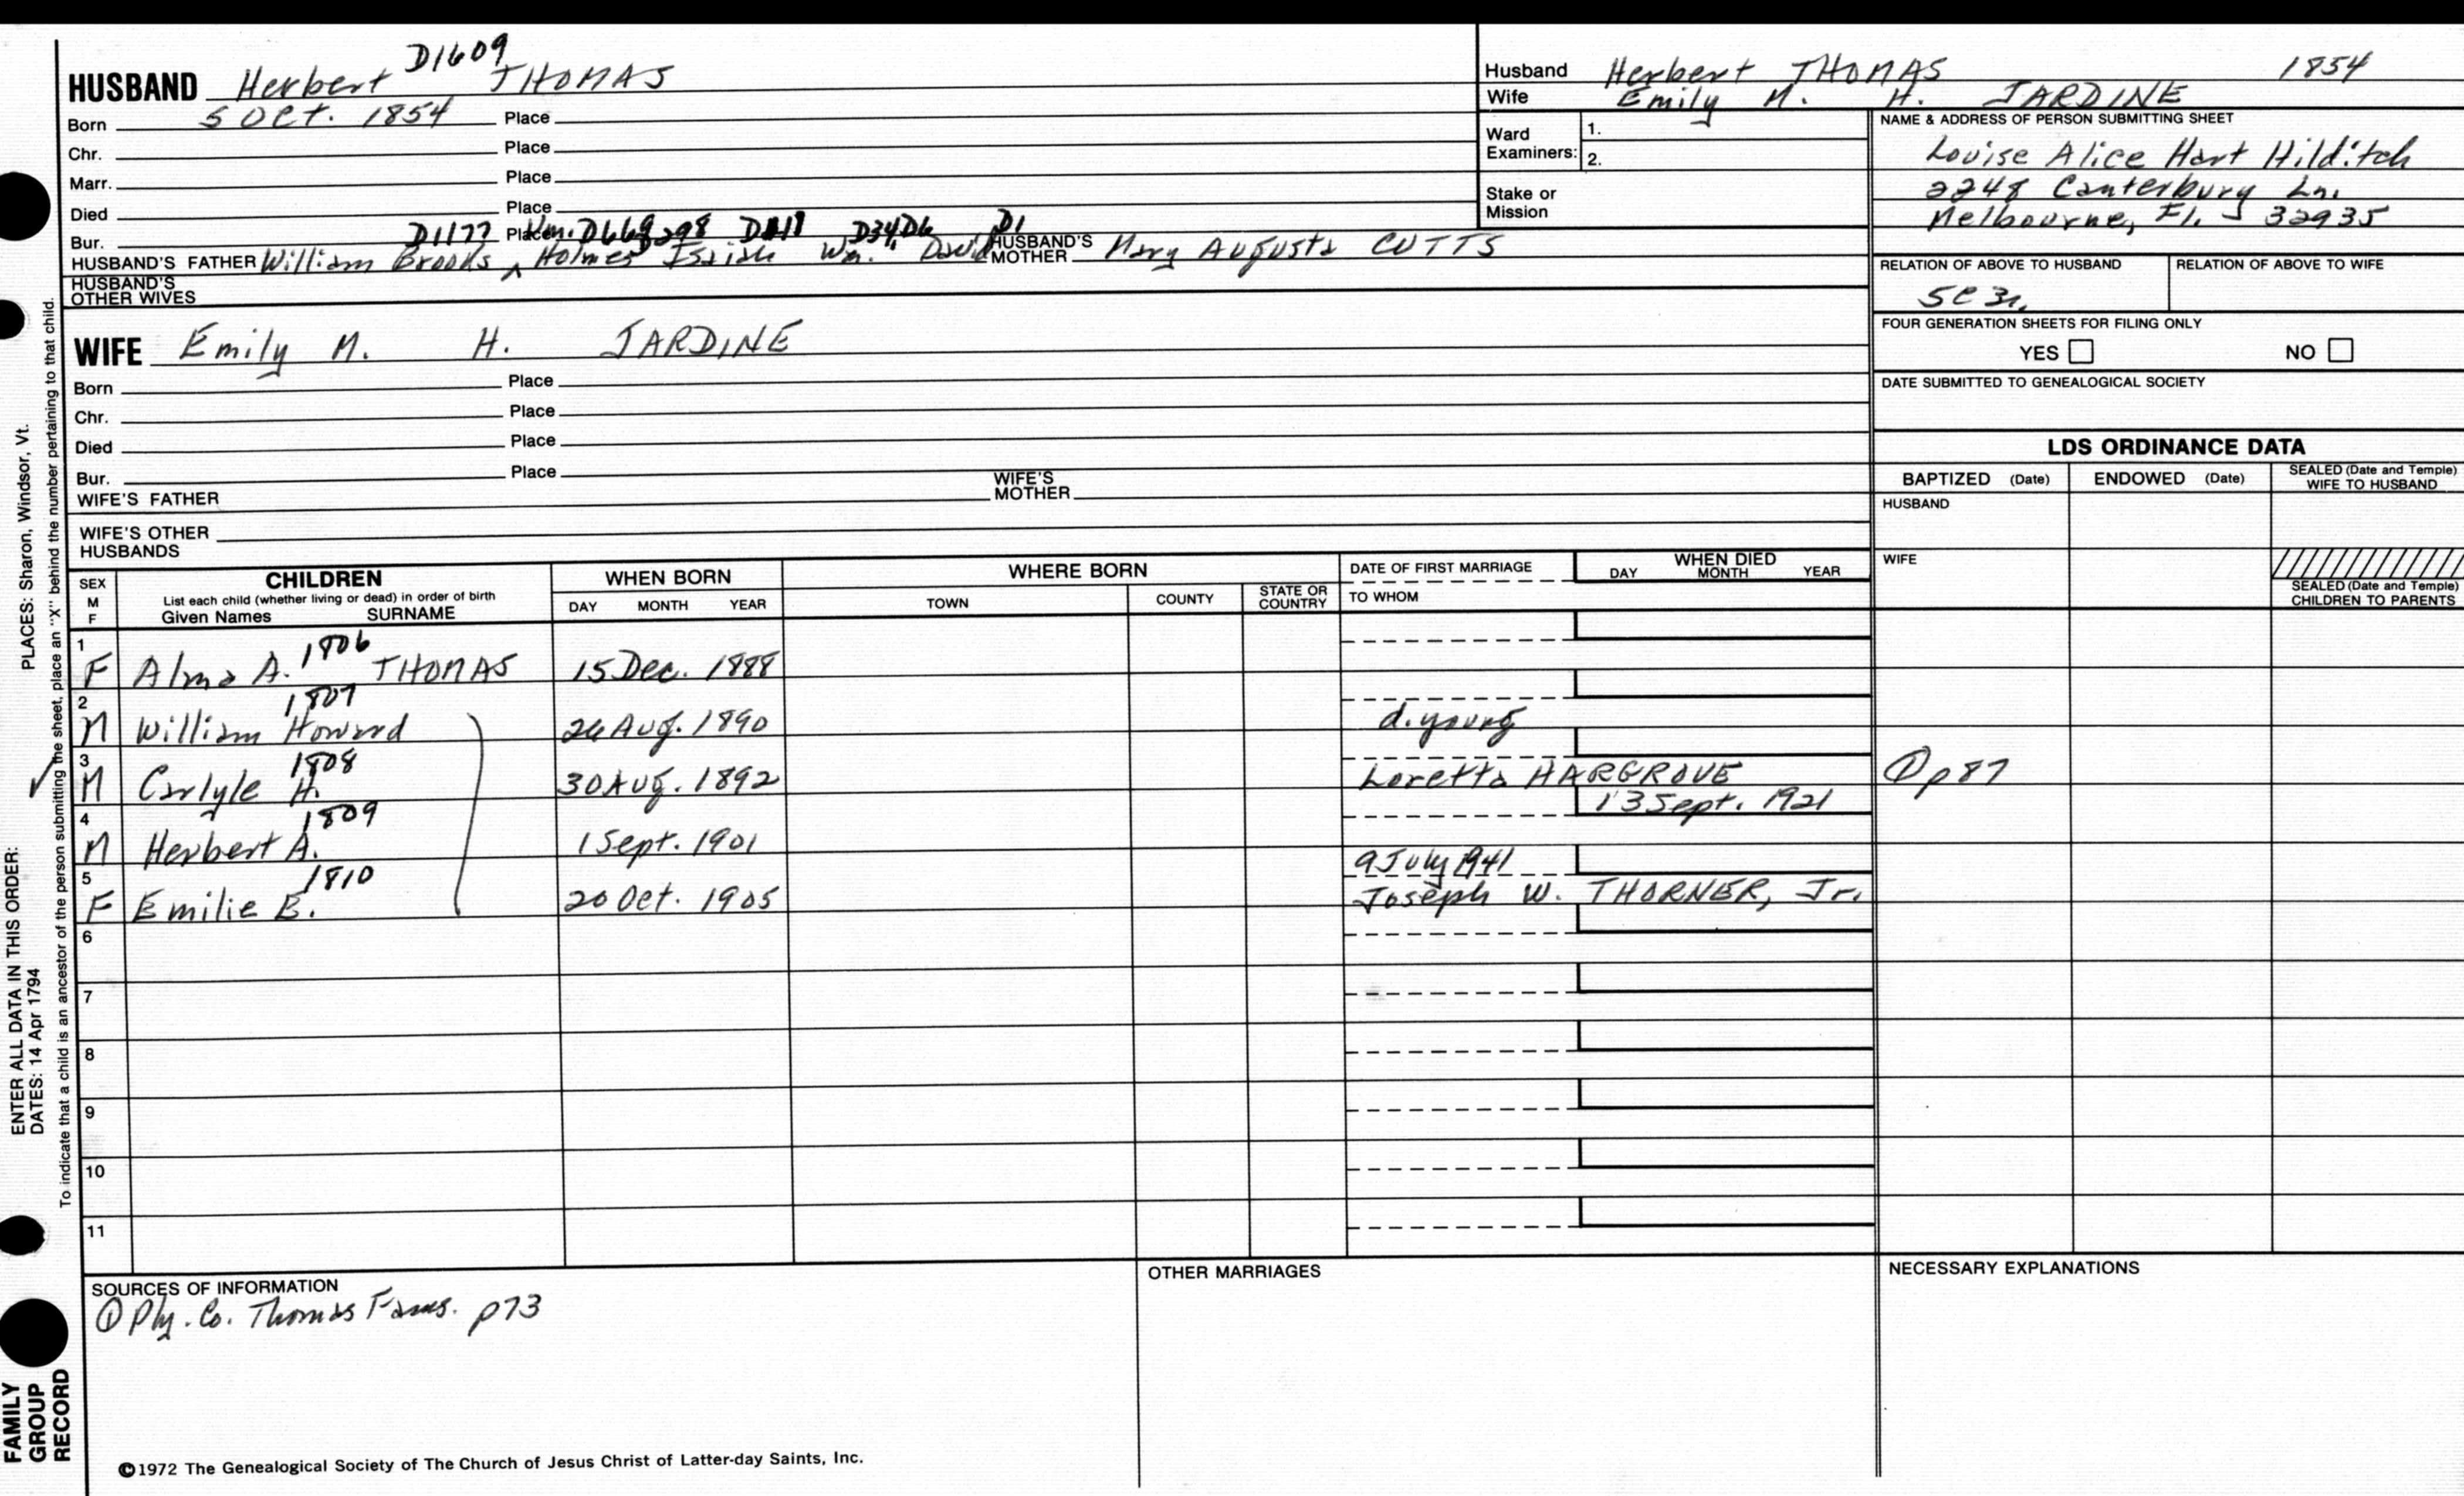 D1609
HUSBAND Herbert THOMAS
Born 5 Oct. 1854 Place
Chr. Place
Marr. Place
Died Place
Bur. Place
D1177 D669 298 D34 D6 D1
HUSBAND'S FATHER William Brooks, Holmes Isaiah Wm. David HUSBAND'S MOTHER Mary Augusta CUTTS
HUSBAND'S OTHER WIVES
WIFE Emily M. H. JARDINE
Born Place
Chr. Place
Died Place
Bur. Place
WIFE'S FATHER WIFE'S MOTHER
WIFE'S OTHER HUSBANDS
Husband Herbert THOMAS 1854
Wife Emily M. H. JARDINE
Ward Examiners: 1.
2.
Stake or Mission
NAME & ADDRESS OF PERSON SUBMITTING SHEET
Louise Alice Hart Hilditch
2248 Canterbury Ln.
Melbourne, Fl. 32935
RELATION OF ABOVE TO HUSBAND RELATION OF ABOVE TO WIFE
5C 3r.
FOUR GENERATION SHEETS FOR FILING ONLY
YES NO
DATE SUBMITTED TO GENEALOGICAL SOCIETY
LDS ORDINANCE DATA
BAPTIZED (Date) ENDOWED (Date) SEALED (Date and Temple) WIFE TO HUSBAND
HUSBAND
WIFE
SEALED (Date and Temple) CHILDREN TO PARENTS
SEX M F CHILDREN WHEN BORN WHERE BORN DATE OF FIRST MARRIAGE WHEN DIED
List each child (whether living or dead) in order of birth
Given Names SURNAME DAY MONTH YEAR TOWN COUNTY STATE OR COUNTRY TO WHOM DAY MONTH YEAR
1 1806
F Alma A. THOMAS 15 Dec. 1888
2 1807
M William Howard 26 Aug. 1890 d. young
3 1808
M Carlyle H. 30 Aug. 1892 Loretta HARGROVE ① p87
13 Sept. 1921
4 1809
M Herbert A. 1 Sept. 1901
5 1810 9 July 1941
F Emilie E. 20 Oct. 1905 Joseph W. THORNER, Jr.
6
7
8
9
10
11
SOURCES OF INFORMATION
① Ply. Co. Thomas Fams. p73
OTHER MARRIAGES
NECESSARY EXPLANATIONS
©1972 The Genealogical Society of The Church of Jesus Christ of Latter-day Saints, Inc.
FAMILY GROUP RECORD
ENTER ALL DATA IN THIS ORDER:
DATES: 14 Apr 1794
PLACES: Sharon, Windsor, Vt.
To indicate that a child is an ancestor of the person submitting the sheet, place an "X" behind the number pertaining to that child.